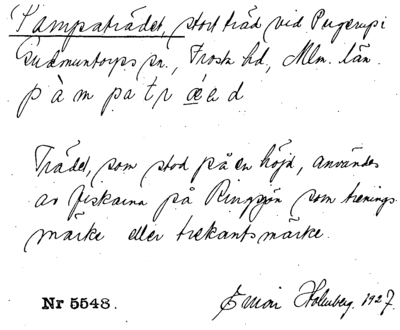 Pampaträdet, stort träd vid Pugerup i
Gudmuntorps sn., Frosta hd, Mlm. län.
p à m p a t r ǽ e d
Trädet, som stod på en höjd, användes
av fiskarna på Ringsjön som trenings-
märke eller trekantsmärke.
Nr 5548. Holmberg. 1927.